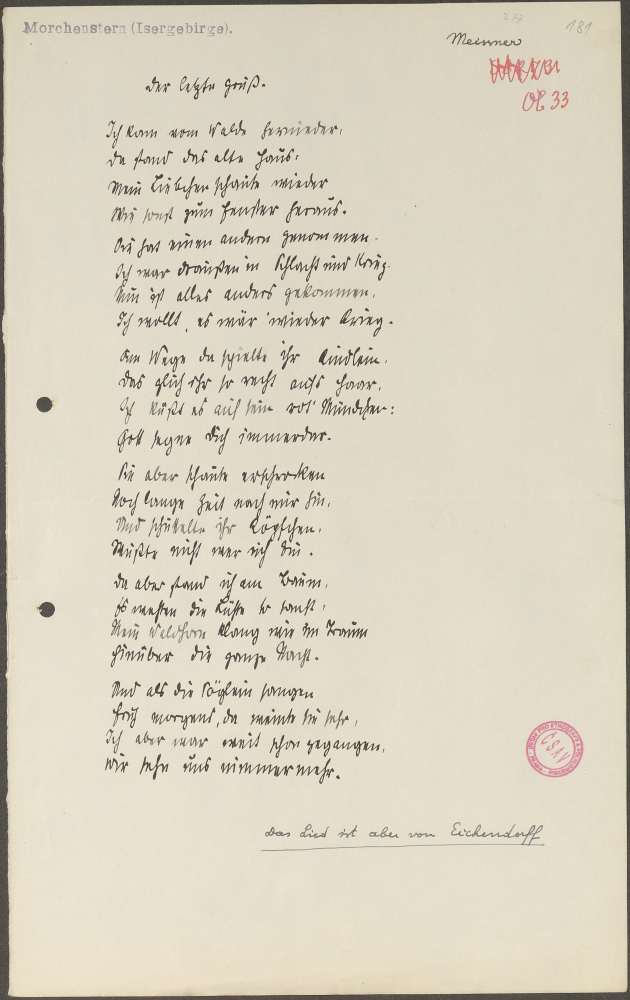 Morchenstern (Isergebirge).
277
181
Meissner
OE 33
Der letzte Gruß.
Ich kam vom Walde hernieder,
Da stand das alte Haus;
Mein Liebchen schaute wieder
Wie sonst zum Fenster heraus.
Sie hat einen andern genommen.
Ich war draußen in Schlacht und Krieg.
Nun ist alles anders gekommen,
Ich wollt, es wär' wieder Krieg.
Am Wege da spielte ihr Kindlein,
Das glich ihr so recht aufs Haar,
Ich küßt es auf sein rot' Mündchen:
Gott segne Dich immerdar.
Sie aber schaute erschrocken
Noch lange Zeit nach mir hin,
Und schüttelte ihr Köpfchen,
Wußte nicht wer ich bin.
Da aber stand ich am Baum,
Es wehten die Lüfte so sanft,
Mein Waldhorn klang wie im Traum
Hinüber die ganze Nacht.
Und als die Vöglein sangen
früh morgens, da weinte sie sehr,
Ich aber war weit schon gegangen,
Wir sehn uns nimmermehr.
Das Lied ist aber von Eichendorff